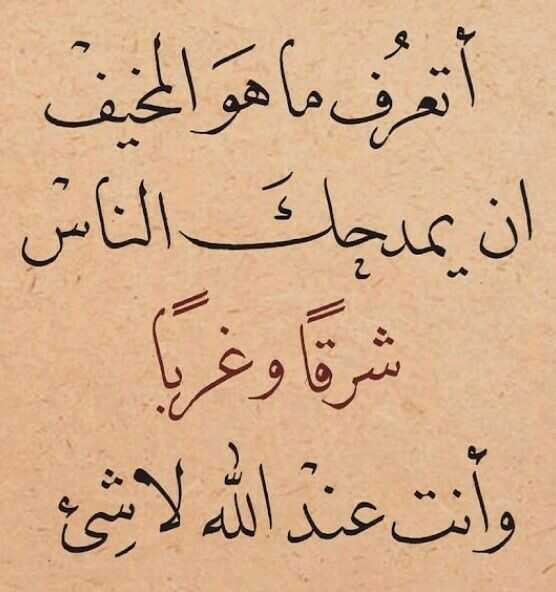 أتعرُف ما هوَ المخيفْ
ان يمدحكَ الناسْ
شرقًا وغربًا
وأنت عنْد الله لا شِئ